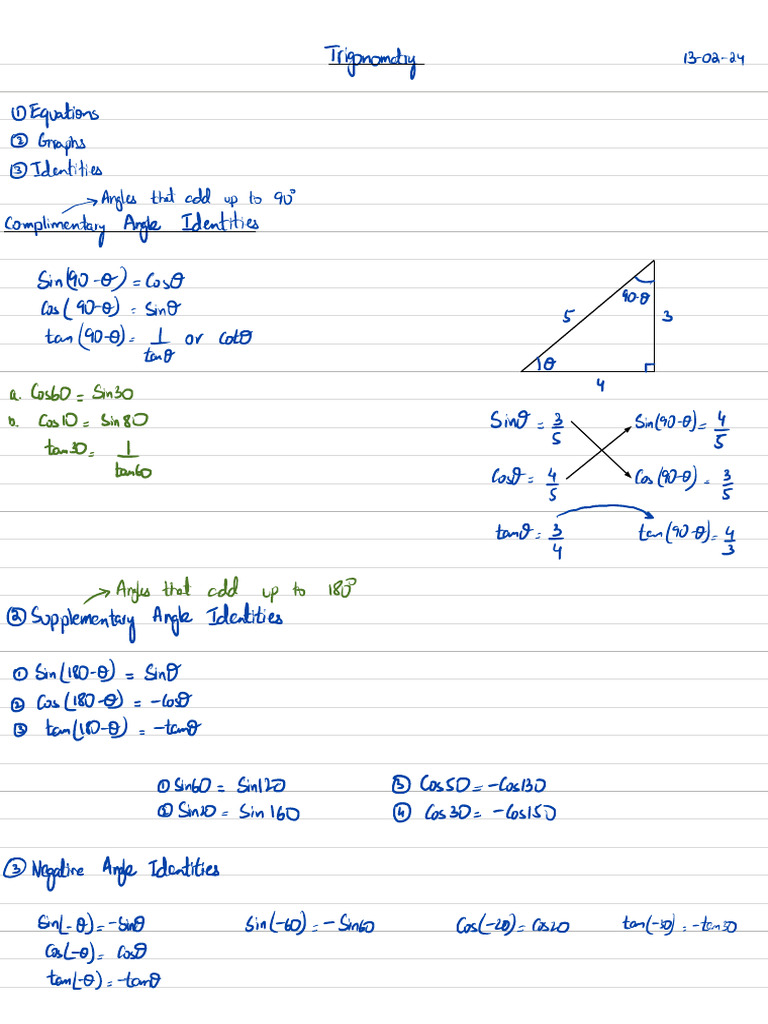 Trigonometry 13-02-24
① Equations
② Graphs
③ Identities
→ Angles that add up to 90°
Complimentary Angle Identities
Sin(90-θ) = Cosθ
Cos(90-θ) = Sinθ
tan(90-θ) = 1/tanθ or Cotθ
90-θ
5
3
θ
4
a. Cos60 = Sin30
b. Cos10 = Sin80
tan30 = 1/tan60
Sinθ = 3/5 Sin(90-θ) = 4/5
Cosθ = 4/5 Cos(90-θ) = 3/5
tanθ = 3/4 tan(90-θ) = 4/3
→ Angles that add up to 180°
② Supplementary Angle Identities
① Sin(180-θ) = Sinθ
② Cos(180-θ) = -Cosθ
③ tan(180-θ) = -tanθ
① Sin60 = Sin120 ③ Cos50 = -Cos130
② Sin20 = Sin 160 ④ Cos30 = -Cos150
③ Negative Angle Identities
Sin(-θ) = -Sinθ Sin(-60) = -Sin60 Cos(-20) = Cos20 tan(-30) = -tan30
Cos(-θ) = Cosθ
tan(-θ) = -tanθ